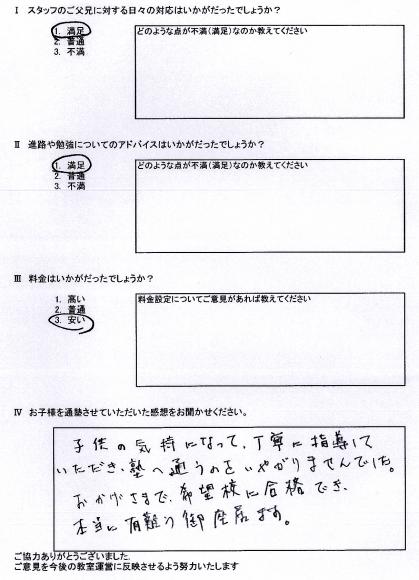 Ⅰ スタッフのご父兄に対する日々の対応はいかがだったでしょうか？
1. 満足
2. 普通
3. 不満
どのような点が不満(満足)なのか教えてください
Ⅱ 進路や勉強についてのアドバイスはいかがだったでしょうか？
1. 満足
2. 普通
3. 不満
どのような点が不満(満足)なのか教えてください
Ⅲ 料金はいかがだったでしょうか？
1. 高い
2. 普通
3. 安い
料金設定についてご意見があれば教えてください
Ⅳ お子様を通塾させていただいた感想をお聞かせください。
子供の気持になって、丁寧に指導して
いただき、塾へ通うのをいやがりませんでした。
おかげさまで、希望校に合格でき、
本当に有難う御座居ます。
ご協力ありがとうございました。
ご意見を今後の教室運営に反映させるよう努力いたします